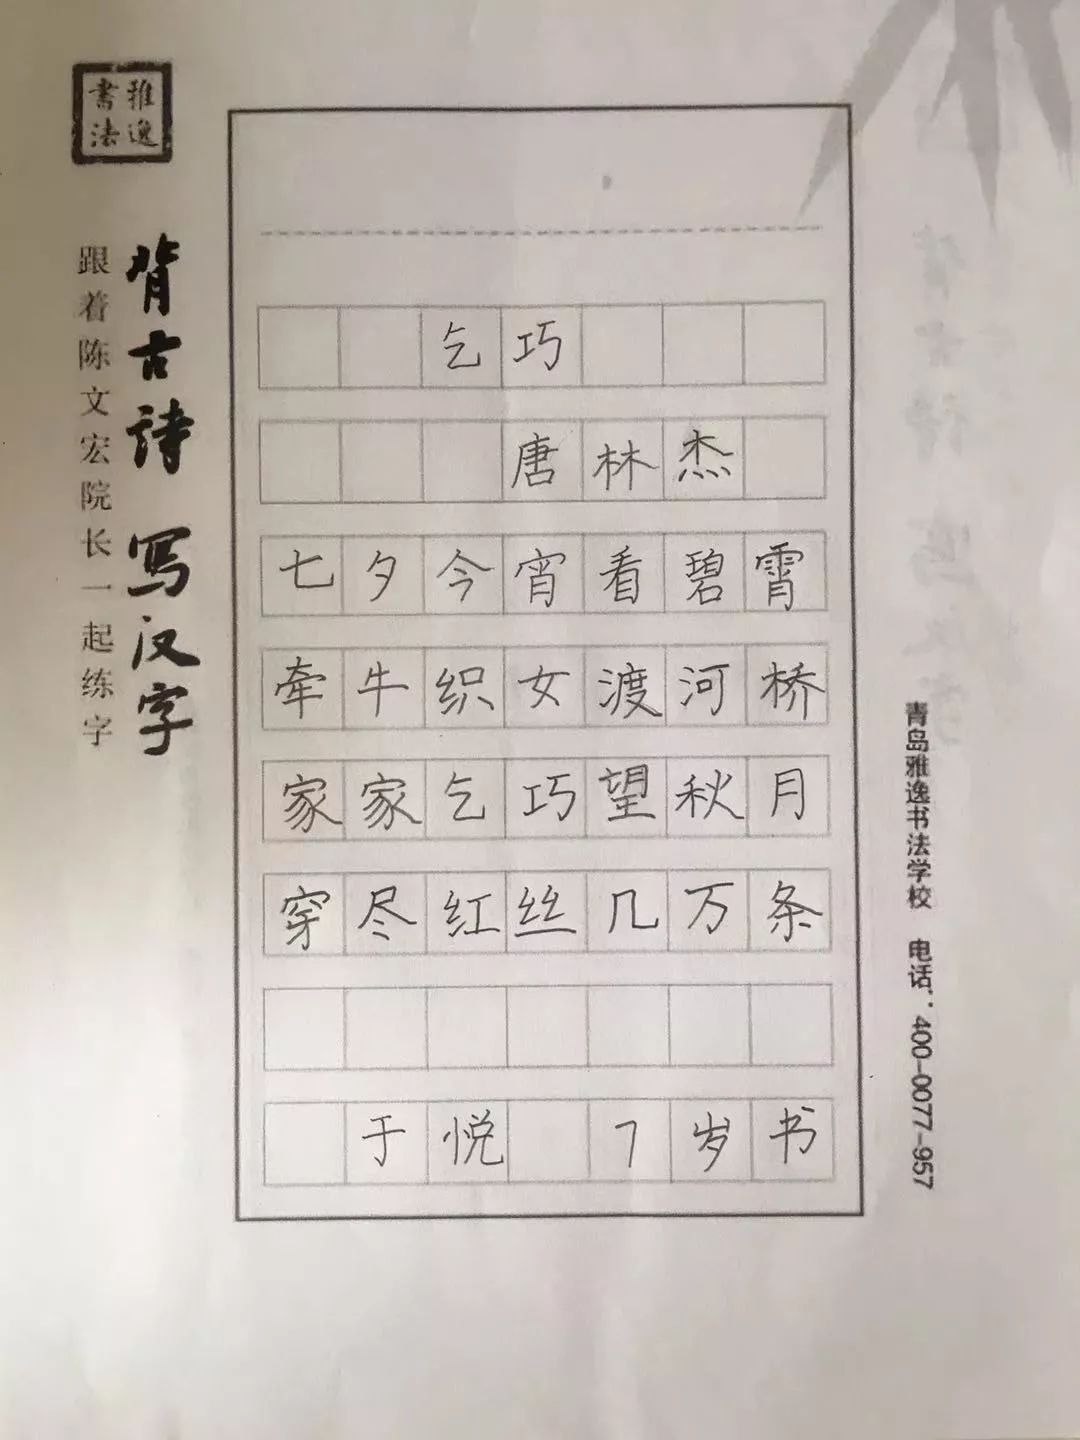 雅逸
書法
背古诗 写汉字
跟着陈文宏院长一起练字
乞巧
唐林杰
七夕今宵看碧霄
牵牛织女渡河桥
家家乞巧望秋月
穿尽红丝几万条
于悦 7岁书
青岛雅逸书法学校 电话:400-0077-957